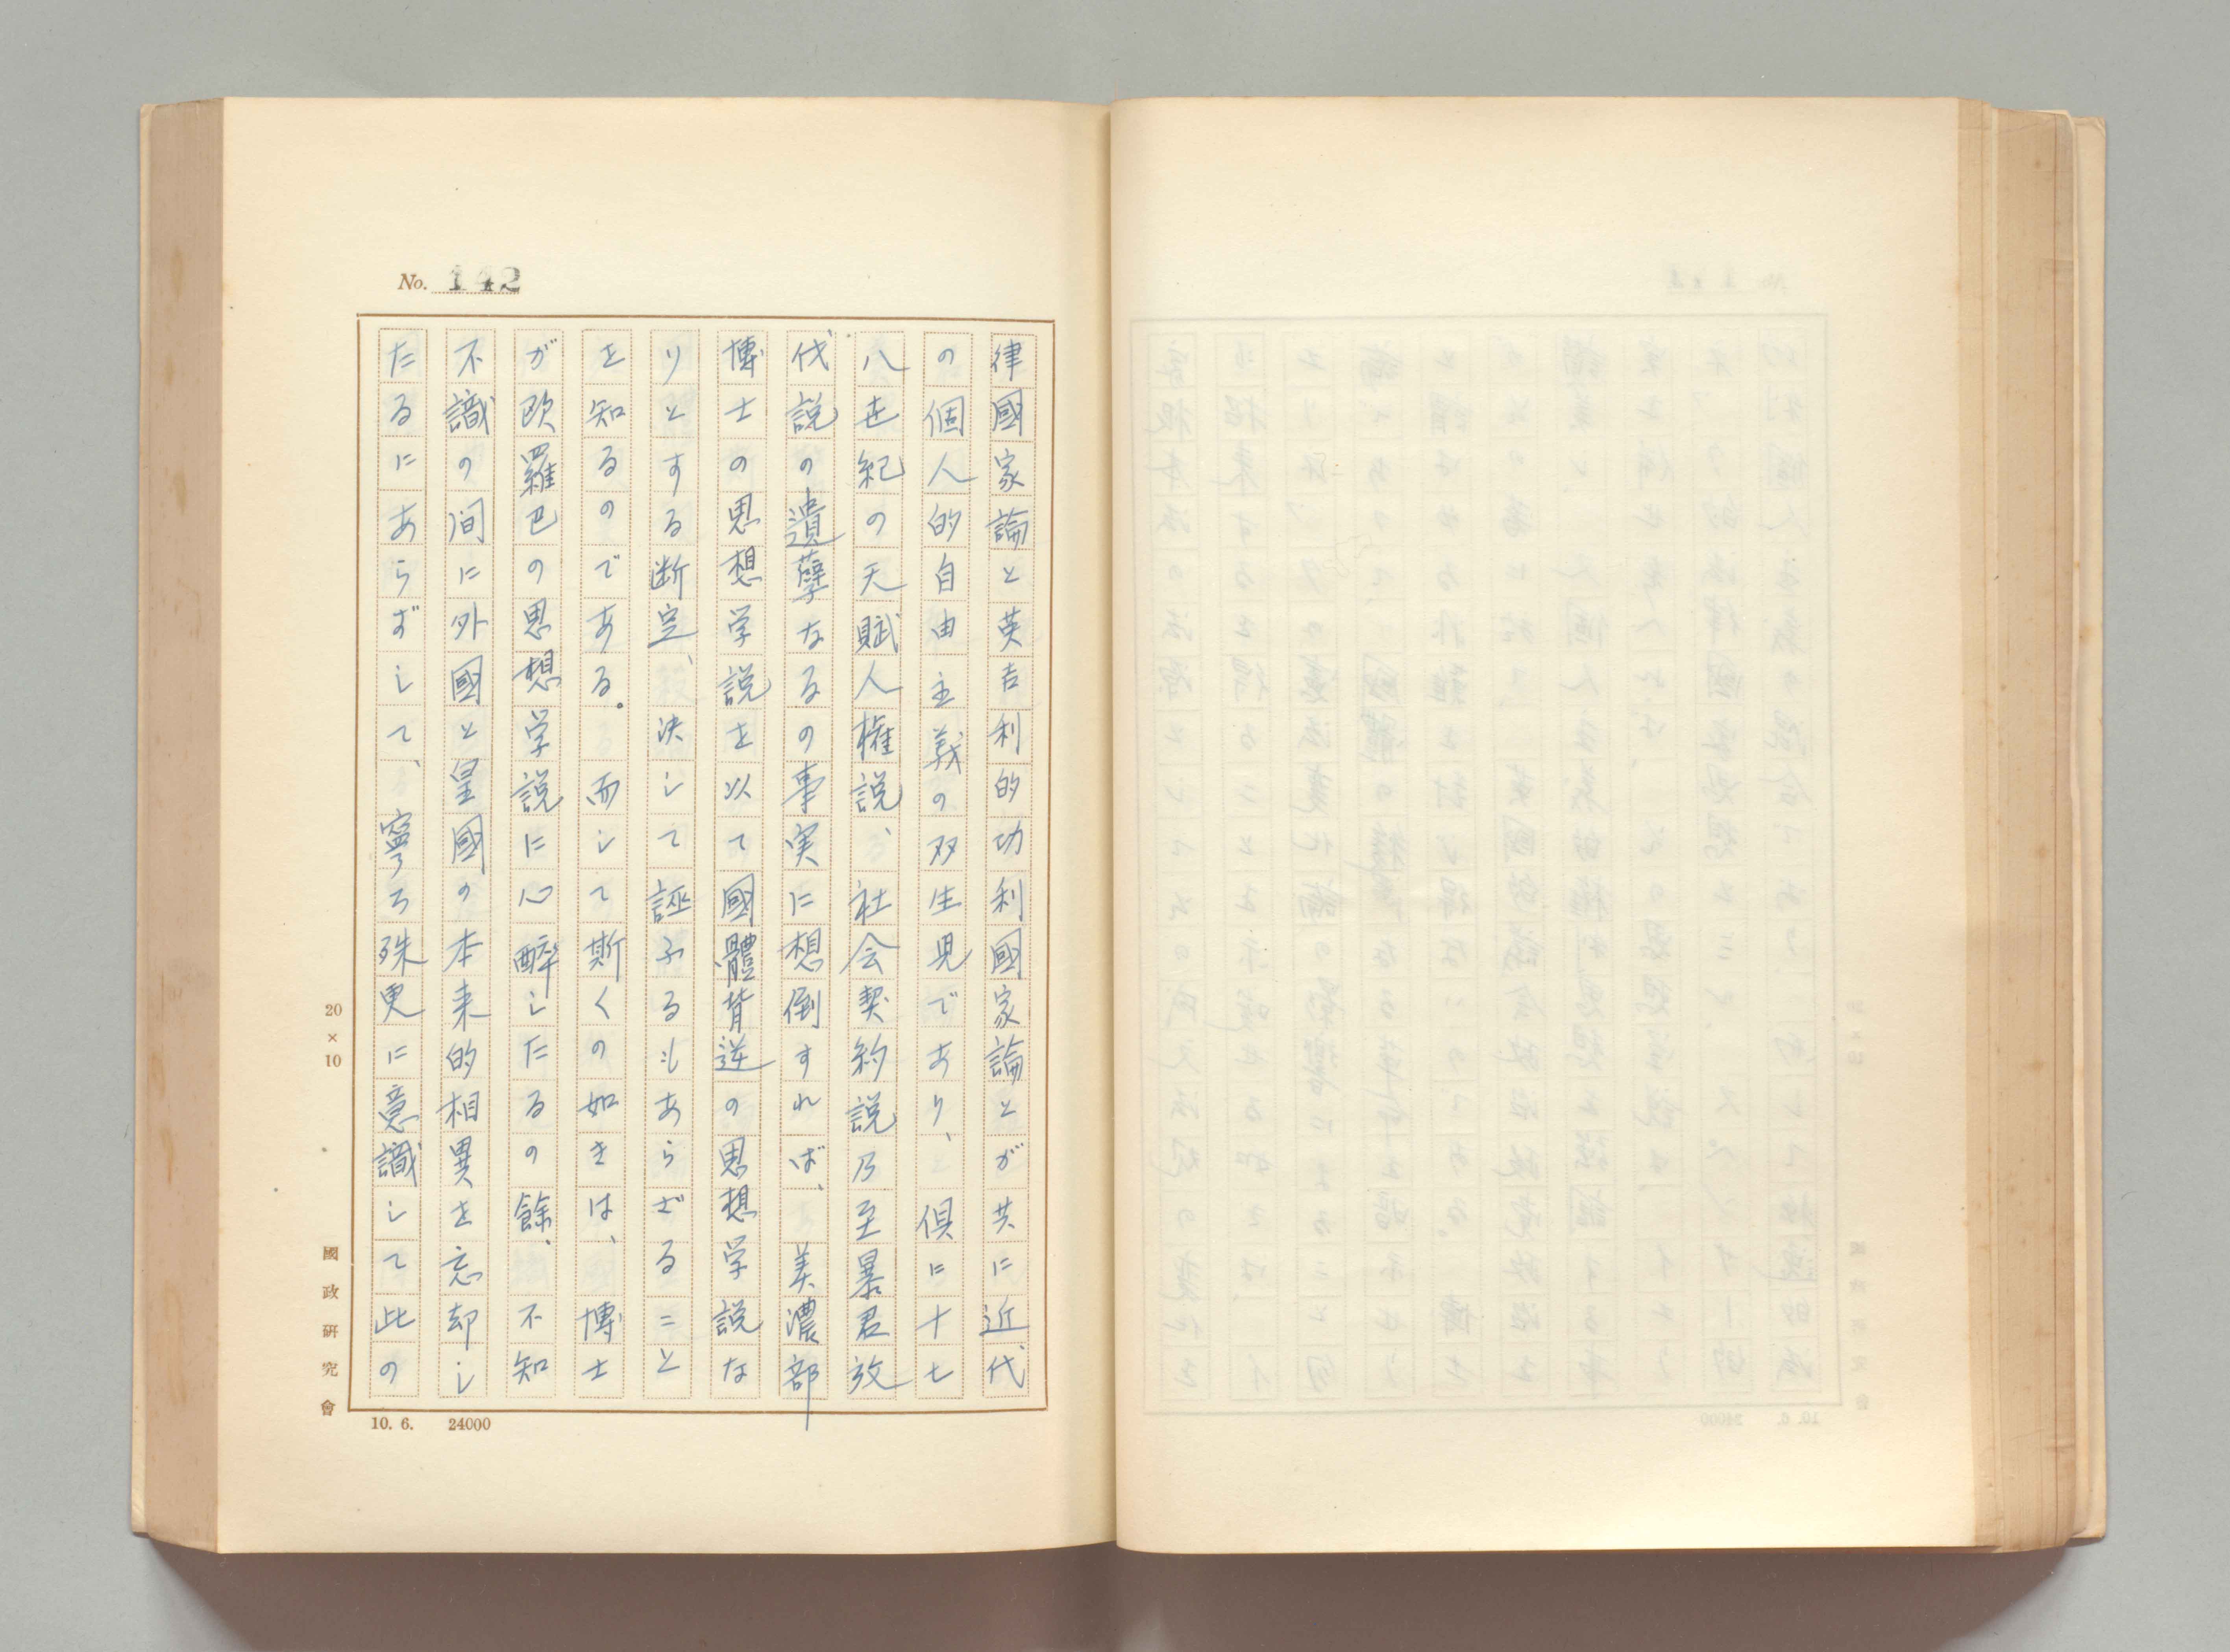 No. 142
律國家論と英吉利的功利國家論とが共に近代
の個人的自由主義の双生児であり、倶に十七
八世紀の天賦人権説、社会契約説乃至暴君放
伐説の遺孽なるの事実に想倒すれば、美濃部
博士の思想学説を以て國體背逆の思想学説な
りとする断定、決して誣ふるもあらざること
を知るのである。而して斯くの如きは、博士
が欧羅巴の思想学説に心醉したるの餘、不知
不識の间に外國と皇國の本来的相異を忘却し
たるにあらずして、寧ろ殊更に意識して此の
20×10
國政研究會
10. 6. 24000